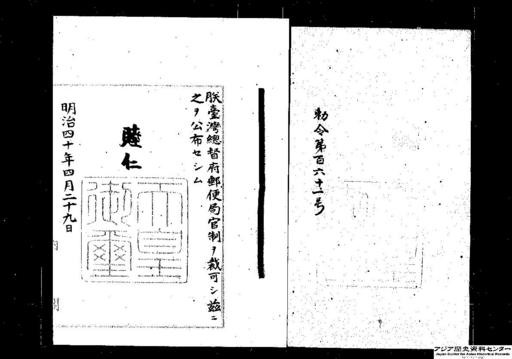 勅令第百六十一号
朕臺灣總督府郵便局官制ヲ裁可シ茲ニ
之ヲ公布セシム
睦仁
天皇
御璽
明治四十年四月二十九日
内閣
アジア歴史資料センター
Japan Center for Asian Historical Records